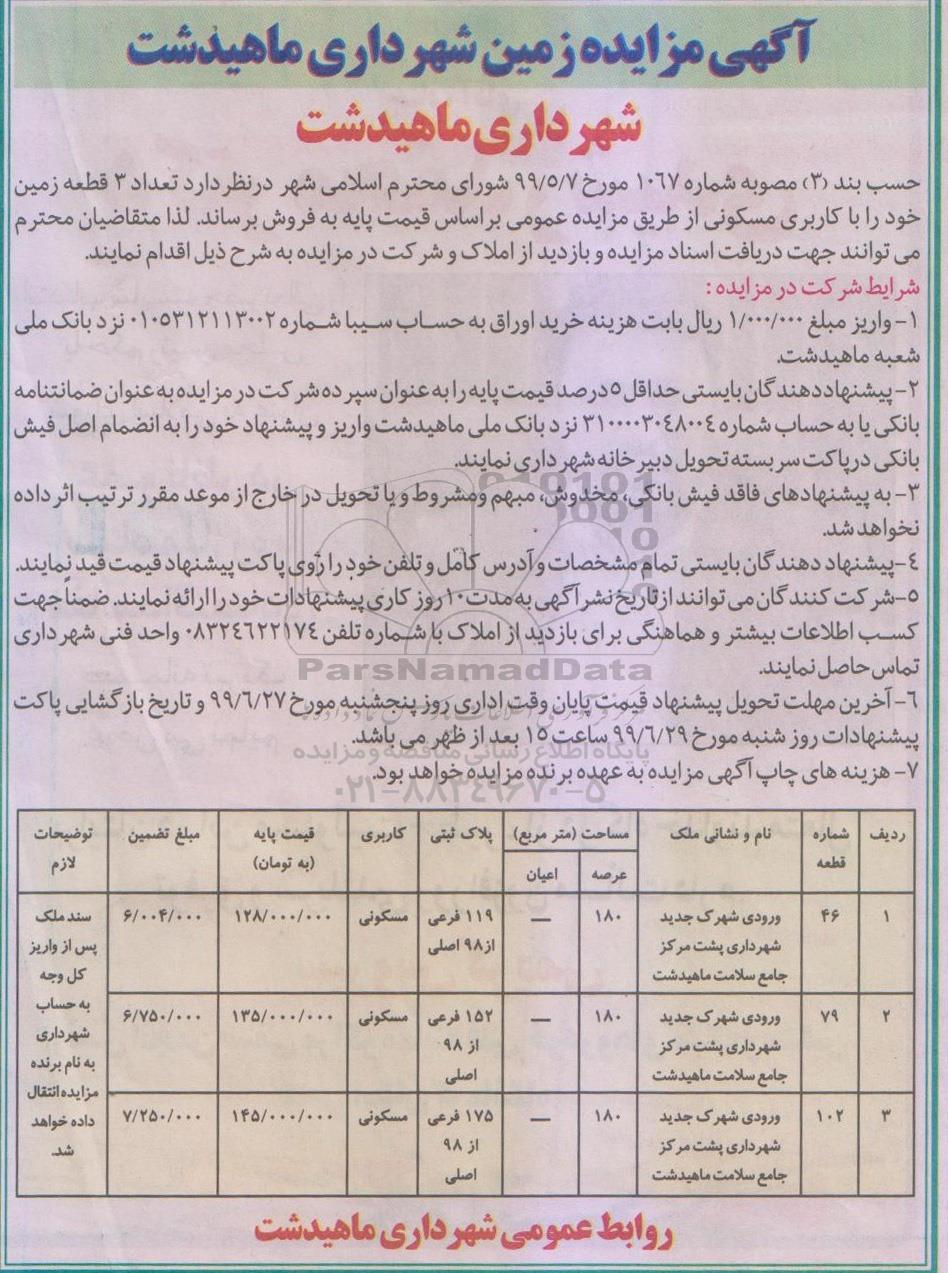 آگهی مزایده زمین شهرداری ماهیدشت
شهرداری ماهیدشت
حسب بند (۳) مصوبه شماره ۱۰۶۷ مورخ ۹۹/۵/۷ شورای محترم اسلامی شهر درنظر دارد تعداد ۳ قطعه زمین
خود را با کاربری مسکونی از طریق مزایده عمومی براساس قیمت پایه به فروش برساند. لذا متقاضیان محترم
می توانند جهت دریافت اسناد مزایده و بازدید از املاک و شرکت در مزایده به شرح ذیل اقدام نمایند.
شرایط شرکت در مزایده :
۱- واریز مبلغ ۱/۰۰۰/۰۰۰ ریال بابت هزینه خرید اوراق به حساب سیبا شماره ۰۱۰۵۳۱۲۱۱۳۰۰۲ نزد بانک ملی
شعبه ماهیدشت.
۲- پیشنهاددهندگان بایستی حداقل ۵درصد قیمت پایه را به عنوان سپرده شرکت در مزایده به عنوان ضمانتنامه
بانکی یا به حساب شماره ۳۱۰۰۰۰۳۰۴۸۰۰۴ نزد بانک ملی ماهیدشت واریز و پیشنهاد خود را به انضمام اصل فیش
بانکی درپاکت سربسته تحویل دبیرخانه شهرداری نمایند.
۳- به پیشنهادهای فاقد فیش بانکی، مخدوش، مبهم ومشروط و یا تحویل در خارج از موعد مقرر ترتیب اثر داده
نخواهد شد.
۴-پیشنهاد دهندگان بایستی تمام مشخصات و آدرس کامل و تلفن خود را روی پاکت پیشنهاد قیمت قید نمایند.
۵-شرکت کنندگان می توانند ازتاریخ نشر آگهی به مدت ۱۰روز کاری پیشنهادات خود را ارائه نمایند. ضمناً جهت
کسب اطلاعات بیشتر و هماهنگی برای بازدید از املاک با شماره تلفن ۰۸۳۲۴۶۲۲۱۷۴ واحد فنی شهرداری
تماس حاصل نمایند.
ParsNamadData
۶- آخرین مهلت تحویل پیشنهاد قیمت پایان وقت اداری روز پنجشنبه مورخ ۹۹/۶/۲۷ و تاریخ بازگشایی پاکت
پیشنهادات روز شنبه مورخ ۹۹/۶/۲۹ ساعت ۱۵ بعد از ظهر می باشد.
پایگاه اطلاع رسانی مناقصه و مزایده
۷- هزینه های چاپ آگهی مزایده به عهده برنده مزایده خواهد بود.
۰۲۱-۸۸۳۴۹۶۷۰-۵
ردیف شماره قطعه نام و نشانی ملک مساحت (متر مربع) عرصه اعیان پلاک ثبتی کاربری قیمت پایه (به تومان) مبلغ تضمین توضیحات لازم
۱ ۴۶ ورودی شهرک جدید شهرداری پشت مرکز جامع سلامت ماهیدشت ۱۸۰ — ۱۱۹ فرعی از۹۸ اصلی مسکونی ۱۲۸/۰۰۰/۰۰۰ ۶/۰۰۴/۰۰۰
۲ ۷۹ ورودی شهرک جدید شهرداری پشت مرکز جامع سلامت ماهیدشت ۱۸۰ — ۱۵۲ فرعی از ۹۸ اصلی مسکونی ۱۳۵/۰۰۰/۰۰۰ ۶/۷۵۰/۰۰۰
۳ ۱۰۲ ورودی شهرک جدید شهرداری پشت مرکز جامع سلامت ماهیدشت ۱۸۰ — ۱۷۵ فرعی از ۹۸ اصلی مسکونی ۱۴۵/۰۰۰/۰۰۰ ۷/۲۵۰/۰۰۰
سند ملک پس از واریز کل وجه به حساب شهرداری به نام برنده مزایده انتقال داده خواهد شد.
روابط عمومی شهرداری ماهیدشت